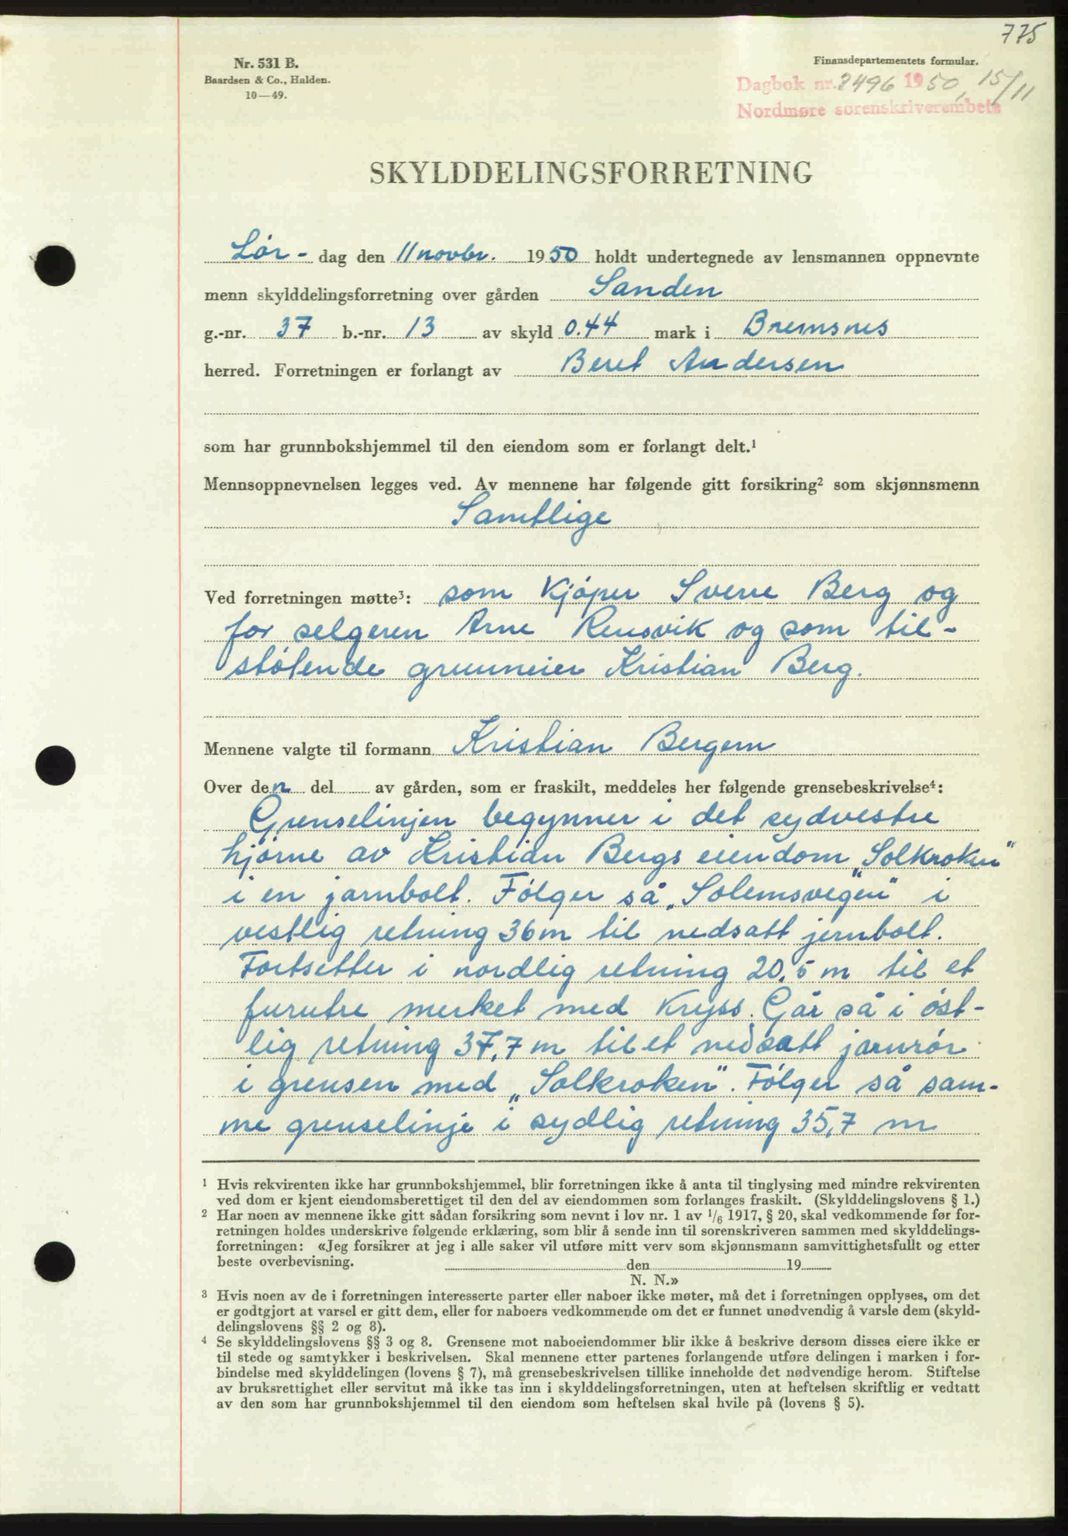 775
Nr. 531 B.
Baardsen & Co., Halden.
10—49.
Finansdepartementets formular.
Dagbok nr. 2496 1950, 15/11
Nordmøre sorenskriverembete
SKYLDDELINGSFORRETNING
Lør- dag den 11 novbr. 1950 holdt undertegnede av lensmannen oppnevnte
menn skylddelingsforretning over gården Sanden
g.-nr. 37 b.-nr. 13 av skyld 0.44 mark i Bremsnes
herred. Forretningen er forlangt av Beret Andersen
som har grunnbokshjemmel til den eiendom som er forlangt delt.¹
Mennsoppnevnelsen legges ved. Av mennene har følgende gitt forsikring² som skjønnsmenn
Samtlige
Ved forretningen møtte³: som Kjøper Sverre Berg og
for selgeren Arne Rensvik og som til-
støtende grunneier Kristian Berg.
Mennene valgte til formann Kristian Bergem
Over den del av gården, som er fraskilt, meddeles her følgende grensebeskrivelse⁴:
Grenselinjen begynner i det sydvestre
hjørne av Kristian Bergs eiendom „Solkroken"
i en jarnbolt. Følger så „Solemsvegen" i
vestlig retning 36 m til nedsatt jernbolt.
Fortsetter i nordlig retning 20,5 m til et
furutre merket med Kryss. Går så i øst-
lig retning 37,7 m til et nedsatt jarnrør
i grensen med „Solkroken". Følger så sam-
me grenselinje i sydlig retning 35,7 m
¹ Hvis rekvirenten ikke har grunnbokshjemmel, blir forretningen ikke å anta til tinglysing med mindre rekvirenten
ved dom er kjent eiendomsberettiget til den del av eiendommen som forlanges fraskilt. (Skylddelingslovens § 1.)
² Har noen av mennene ikke gitt sådan forsikring som nevnt i lov nr. 1 av 1/6 1917, § 20, skal vedkommende før for-
retningen holdes underskrive følgende erklæring, som blir å sende inn til sorenskriveren sammen med skylddelings-
forretningen: «Jeg forsikrer at jeg i alle saker vil utføre mitt verv som skjønnsmann samvittighetsfullt og etter
beste overbevisning. den 19
N. N.»
³ Hvis noen av de i forretningen interesserte parter eller naboer ikke møter, må det i forretningen opplyses, om det
er godtgjort at varsel er gitt dem, eller for naboers vedkommende om det er funnet unødvendig å varsle dem (skyld-
delingslovens §§ 2 og 8).
⁴ Se skylddelingslovens §§ 3 og 8. Grensene mot naboeiendommer blir ikke å beskrive dersom disses eiere ikke er
til stede og samtykker i beskrivelsen. Skal mennene etter partenes forlangende utføre delingen i marken i for-
bindelse med skylddelingen (lovens § 7), må grensebeskrivelsen tillike inneholde det nødvendige herom. Stiftelse
av bruksrettighet eller servitut må ikke tas inn i skylddelingsforretningen, uten at heftelsen skriftlig er vedtatt
av den som har grunnbokshjemmel til den eiendom som heftelsen skal hvile på (lovens § 5).